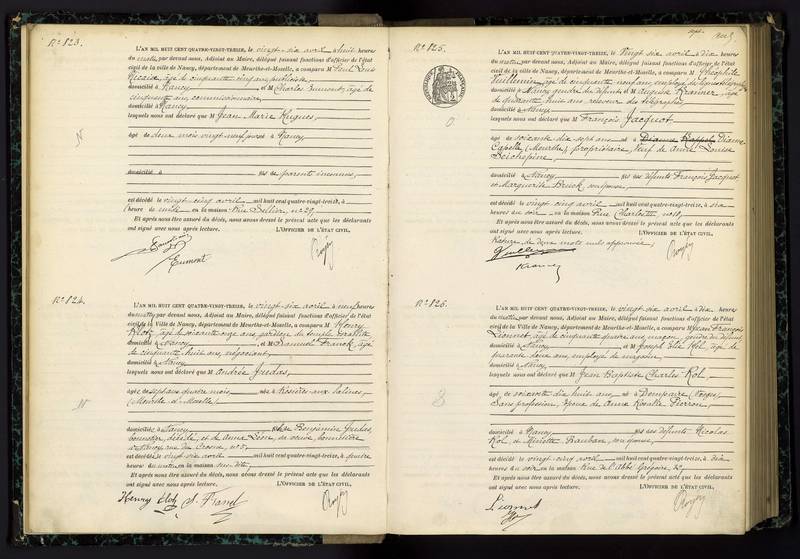 No 823.
L'AN MIL HUIT CENT QUATRE-VINGT-TREIZE, le vingt-six avril à huit heures
du matin, par devant nous, Adjoint au Maire, délégué faisant fonctions d'officier de l'état
civil de la ville de Nancy, département de Meurthe-et-Moselle, a comparu M Paul Louis
âgé de cinquante cinq ans
domicilié à Nancy et M Charles Eumont, âgé de
cinquante ans, commissionnaire
domicilié à Nancy
lesquels nous ont déclaré que M Jean Marie Hugues,
âgé de deux mois vingt neuf jours né à Nancy,
domicilié à fils de parents inconnus,
est décédé le vingt-cinq avril mil huit cent quatre-vingt-treize, à
heure du en la maison Rue Sellier, no 29,
Et après nous être assuré du décès, nous avons dressé le présent acte que les déclarants
ont signé avec nous après lecture. L'OFFICIER DE L'ÉTAT CIVIL,
Eumont
No 824.
L'AN MIL HUIT CENT QUATRE-VINGT-TREIZE, le vingt-six avril à neuf heures
du matin, par devant nous, Adjoint au Maire, délégué faisant fonctions d'officier de l'état
civil de la Ville de Nancy, département de Meurthe-et-Moselle, a comparu M Henry
Bloch, âgé de soixante onze ans, gardien du temple israélite
domicilié à Nancy et M Samuel Franck, âgé
de cinquante huit ans, négociant,
domicilié à Nancy
lesquels nous ont déclaré que M Andrée Judas,
âgée de sept ans quatre mois, née à Rosières-aux-Salines,
(Meurthe et Moselle),
domiciliée à Nancy fille de Benjamin Judas,
décédé, et de Anna Lévy, sa veuve,
à Nancy rue
est décédée le vingt-six avril mil huit cent quatre-vingt-treize, à quatre
heures du matin en la maison
Et après nous être assuré du décès, nous avons dressé le présent acte que les déclarants
ont signé avec nous après lecture. L'OFFICIER DE L'ÉTAT CIVIL,
Henry Bloch S. Franck
No 825.
L'AN MIL HUIT CENT QUATRE-VINGT-TREIZE, le Vingt six avril à dix heures
du matin, par devant nous, Adjoint au Maire, délégué faisant fonctions d'officier de l'état
civil de la ville de Nancy, département de Meurthe-et-Moselle, a comparu M Théophile
Vuillemin, âgé de cinquante neuf ans, employé
domicilié à Nancy gendre du défunt et M Auguste Kranner, âgé
de quarante huit ans, receveur des télégraphes,
domicilié à Nancy
lesquels nous ont déclaré que M François Jacquot
âgé de soixante dix sept ans né à
Capelle (Meurthe), propriétaire, veuf de Anne Louise
domicilié à Nancy fils des défunts François Jacquot
et Marguerite Bruck, son épouse,
est décédé le vingt cinq avril mil huit cent quatre-vingt-treize, à six
heures du soir en la maison Rue Charles III, no 10,
Et après nous être assuré du décès, nous avons dressé le présent acte que les déclarants
ont signé avec nous après lecture. L'OFFICIER DE L'ÉTAT CIVIL,
Rature de deux mots nuls approuvée,
Vuillemin
Kranner
No 826.
L'AN MIL HUIT CENT QUATRE-VINGT-TREIZE, le vingt six avril à dix heures
du matin, par devant nous, Adjoint au Maire, délégué faisant fonctions d'officier de l'état
civil de la Ville de Nancy, département de Meurthe-et-Moselle, a comparu M Jean François
Lionnet, âgé de cinquante quatre ans, maçon, gendre du défunt
domicilié à Nancy et M Joseph Elie âgé de
quarante deux ans, employé de magasin
domicilié à Nancy
lesquels nous ont déclaré que M Jean Baptiste Charles Rol
âgé de soixante dix huit ans né à Dompaire (Vosges),
Sans profession, époux de Anne Rosalie Pierron
domicilié à Nancy fils des défunts Nicolas
Rol, et son épouse,
est décédé le vingt-cinq avril mil huit cent quatre-vingt-treize, à dix
heures du soir en la maison Rue de l'Abbé Grégoire, 32,
Et après nous être assuré du décès, nous avons dressé le présent acte que les déclarants
ont signé avec nous après lecture. L'OFFICIER DE L'ÉTAT CIVIL,
Lionnet